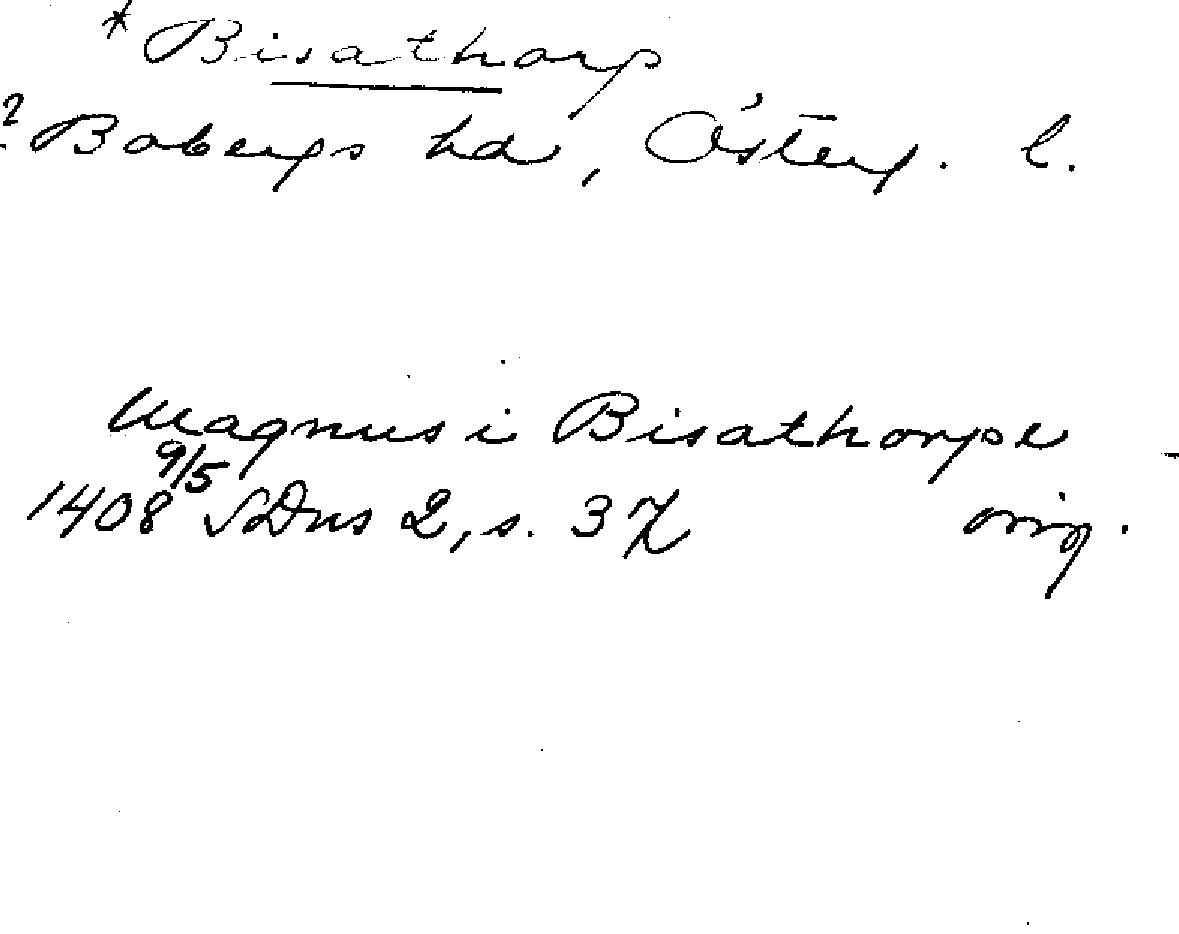 * Bisathorp
? Bobergs hd, Österg. l.
Magnus i Bisathorpe
1408 9/5 SDns 2, s. 37 orig.